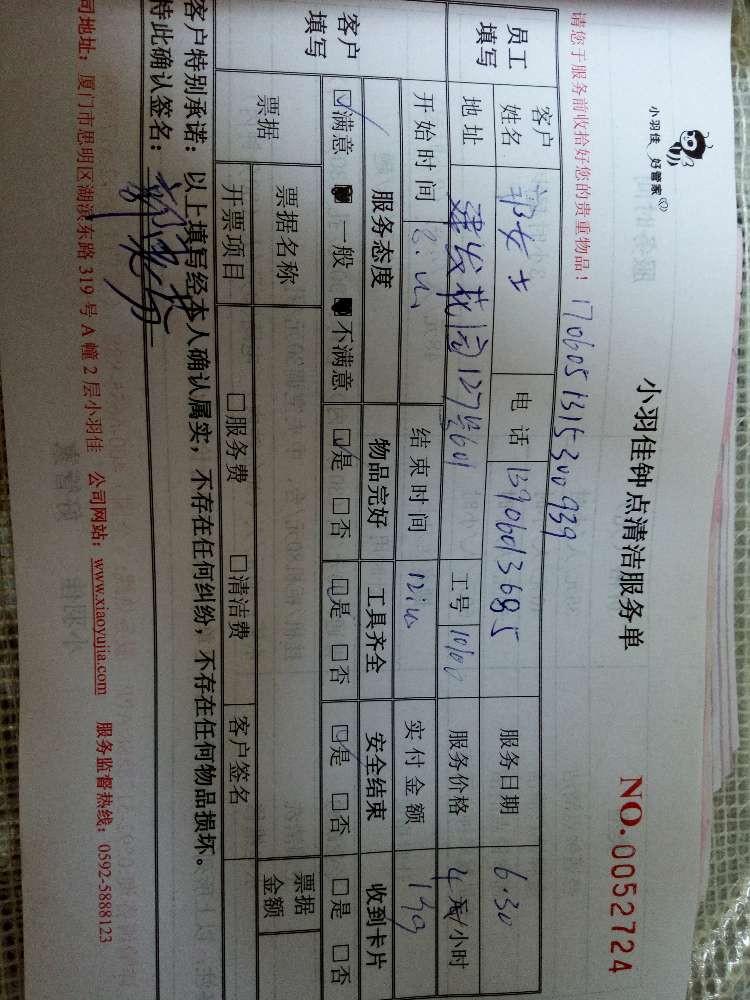 小羽佳 好管家
小羽佳钟点清洁服务单
NO.0052724
请您于服务前收拾好您的贵重物品！
1706051315300939
员工填写 客户姓名 郑女士 电话 13906013685 服务日期 6.30
地址 建发花园127号601 工号 服务价格 4 元/小时
客户填写 开始时间 结束时间 实付金额
服务态度 物品完好 工具齐全 安全结束 收到卡片
☑满意 一般 不满意 ☑是 □否 ☑是 □否 ☑是 □否 □是 □否
票据 票据名称 □服务费 □清洁费 票据金额
开票项目 客户签名
客户特别承诺：以上填写经本人确认属实，不存在任何纠纷，不存在任何物品损坏。
特此确认签名：
司地址：厦门市思明区湖滨东路 319 号 A 幢 2 层小羽佳 公司网站：www.xiaoyujia.com 服务监督热线：0592-5888123